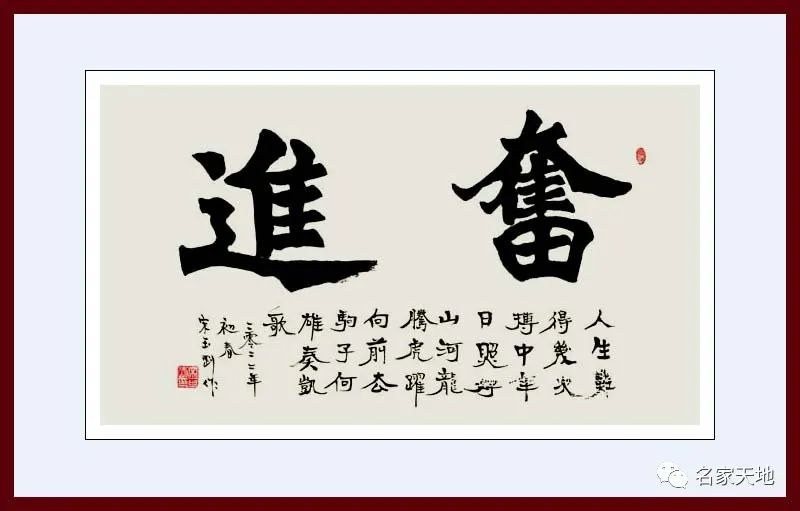 奮進
人生難
得幾次
搏中年
日照好
山河龍
騰虎躍
向前去
駒子何
雄奏凱
歌
二零二二年
初春
宋玉作
名家天地